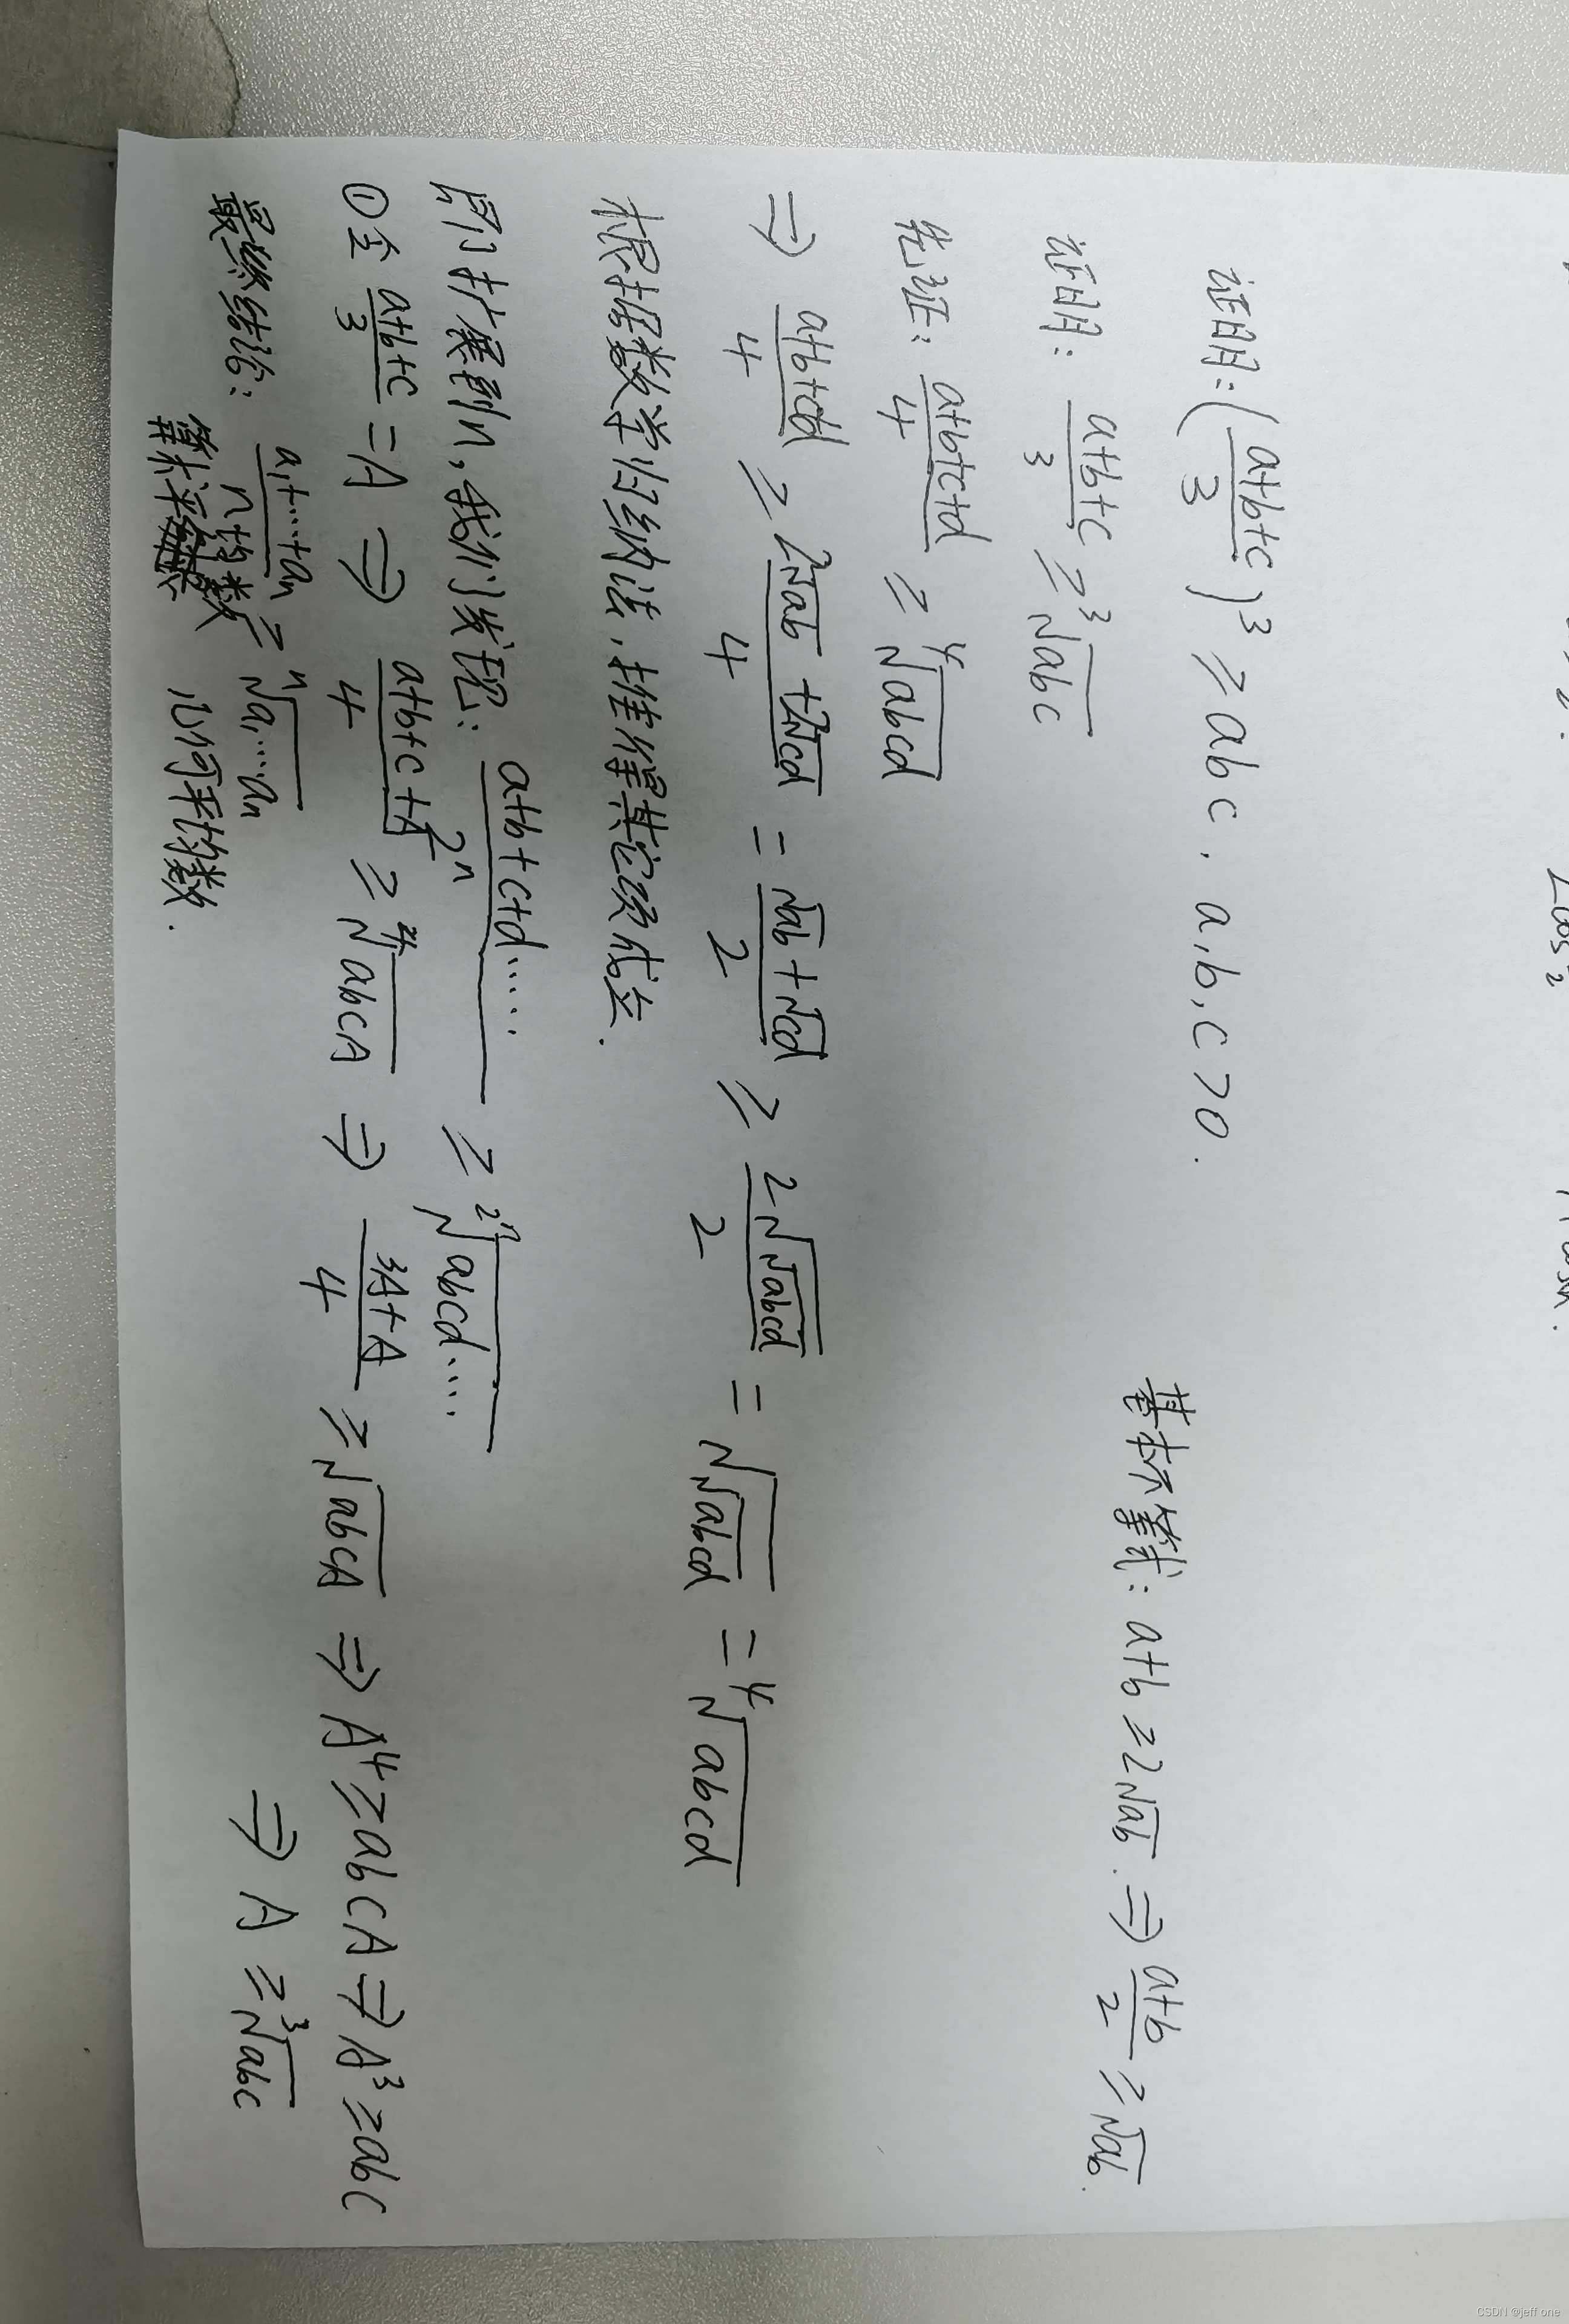 证明:(\frac{a+b+c}{3})^3 ≥ abc, a,b,c>0.
基本不等式: a+b≥2√ab. ⇒ \frac{a+b}{2} ≥ √ab.
证明: \frac{a+b+c}{3} ≥ \sqrt[3]{abc}
先证: \frac{a+b+c+d}{4} ≥ \sqrt[4]{abcd}
⇒ \frac{a+b+c+d}{4} ≥ \frac{2\sqrt{ab}+2\sqrt{cd}}{4} = \frac{\sqrt{ab}+\sqrt{cd}}{2} ≥ \frac{2\sqrt{\sqrt{abcd}}}{2} = \sqrt{\sqrt{abcd}} = \sqrt[4]{abcd}
根据数学归纳法,推得其它项成立.
即扩展到n,我们发现: \frac{a+b+c+d.....}{2^n} ≥ \sqrt[2^n]{abcd.....}
①令 \frac{a+b+c}{3} = A ⇒ \frac{a+b+c+A}{4} ≥ \sqrt[4]{abcA} ⇒ \frac{3A+A}{4} ≥ \sqrt{abcA} ⇒ A^4≥abcA ⇒ A^3≥abc
⇒ A ≥ \sqrt[3]{abc}
最终结论: \frac{a_1+...+a_n}{n} ≥ \sqrt[n]{a_1...a_n}
算术平均数 几何平均数.
CSDN @jeff one